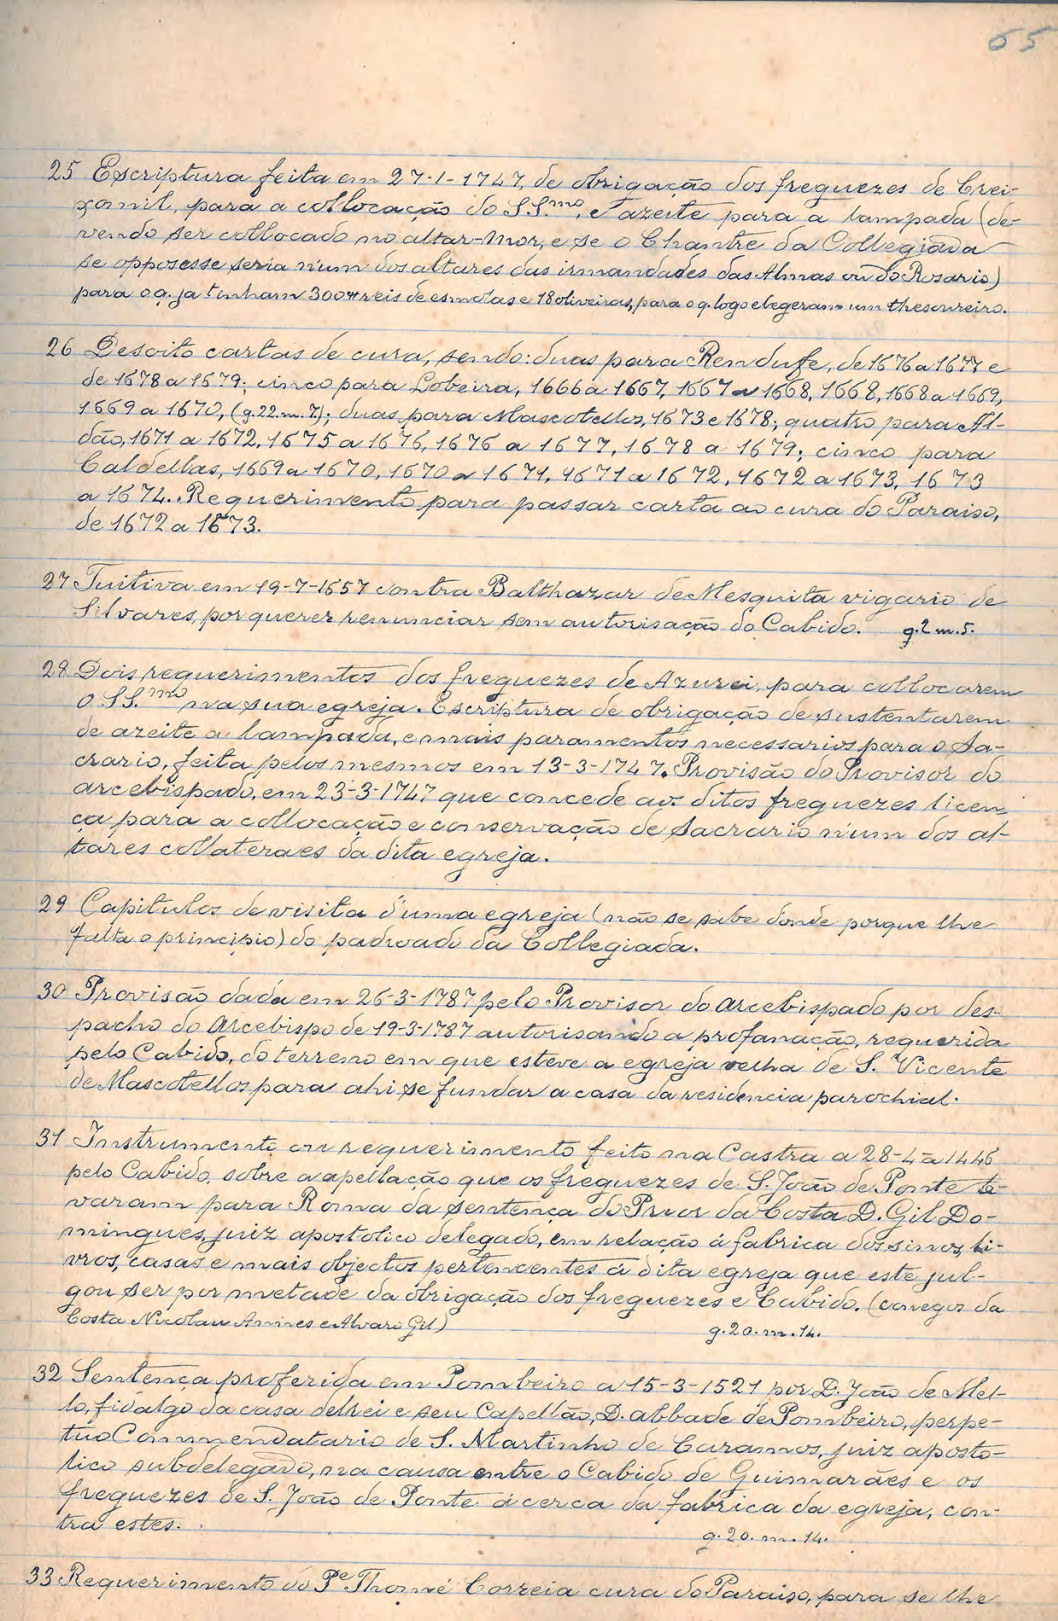 65
25 Escriptura feita em 27-1-1747, de obrigação dos freguezes de Crei-
xomil, para a collocação do S.S.mo, e azeite para a lampada (de-
vendo ser collocado no altar-mor, e se o Chantre da Collegiada
se oppozesse seria n'um dos altares das irmandades das Almas ou do Rosario)
para o q. ja tinham 300# reis de esmolas e 18 oliveiras, para o q. logo elegeram um thesoureiro.
26 Desoito cartas de cura, sendo: duas para Rendufe, de 1676 a 1677 e
de 1678 a 1679; cinco para Lobeira, 1666 a 1667, 1667 a 1668, 1668, 1668 a 1669,
1669 a 1670, (g. 22. m. 7); duas para Mascotellos, 1673 e 1678; quatro para Al-
dão, 1671 a 1672, 1675 a 1676, 1676 a 1677, 1678 a 1679; cinco para
Caldellas, 1669 a 1670, 1670 a 1671, 1671 a 1672, 1672 a 1673, 1673
a 1674. Requerimento para passar carta ao cura do Paraiso,
de 1672 a 1673.
27 Tuitiva em 19-7-1657 contra Balthazar de Mesquita vigario de
Silvares, por querer renunciar sem autorisação do Cabido. g. 2 m. 5.
28 Dois requerimentos dos freguezes de Azurei, para collocarem
o S.S.mo na sua egreja. Escriptura de obrigação de sustentarem
de azeite a lampada, e mais paramentos necessarios para o Sa-
crario, feita pelos mesmos em 13-3-1747. Provisão do Provisor do
arcebispado, em 23-3-1747 que concede aos ditos freguezes licen
ça para a collocação e conservação de sacrario n'um dos al-
tares collateraes da dita egreja.
29 Capitulos de visita d'uma egreja (não se sabe donde porque lhe
falta o principio) do padroado da Collegiada.
30 Provisão dada em 26-3-1787 pelo Provisor do arcebispado por des-
pacho do Arcebispo de 19-3-1787 autorisando a profanação, requerida
pelo Cabido, do terreno em que esteve a egreja velha de S. Vicente
de Mascotellos para ahi se fundar a casa da residencia parochial.
31 Instrumento em requerimento feito na Castra a 28-4-1446
pelo Cabido, sobre a apellação que os freguezes de S. João de Ponte le-
varam para Roma da sentença do Prior da Costa D. Gil Do-
mingues, juiz apostolico delegado, em relação á fabrica dos sinos, li-
vros, casas e mais objectos pertencentes á dita egreja que este jul-
gou ser por metade da obrigação dos freguezes e Cabido. (conegos da
Costa Nicolau Annes e Alvaro Gil) g. 20. m. 14.
32 Sentença proferida em Pombeiro a 15-3-1521 por D. João de Mel-
lo, fidalgo da casa delrei e seu Capellão, D. abbade de Pombeiro, perpe-
tuo Commendatario de S. Martinho de Caramos, juiz aposto-
lico subdelegado, na causa entre o Cabido de Guimarães e os
freguezes de S. João de Ponte ácerca da fabrica da egreja, con-
tra estes. g. 20. m. 14.
33 Requerimento do Pe Thomé Correia cura do Paraiso, para se lhe